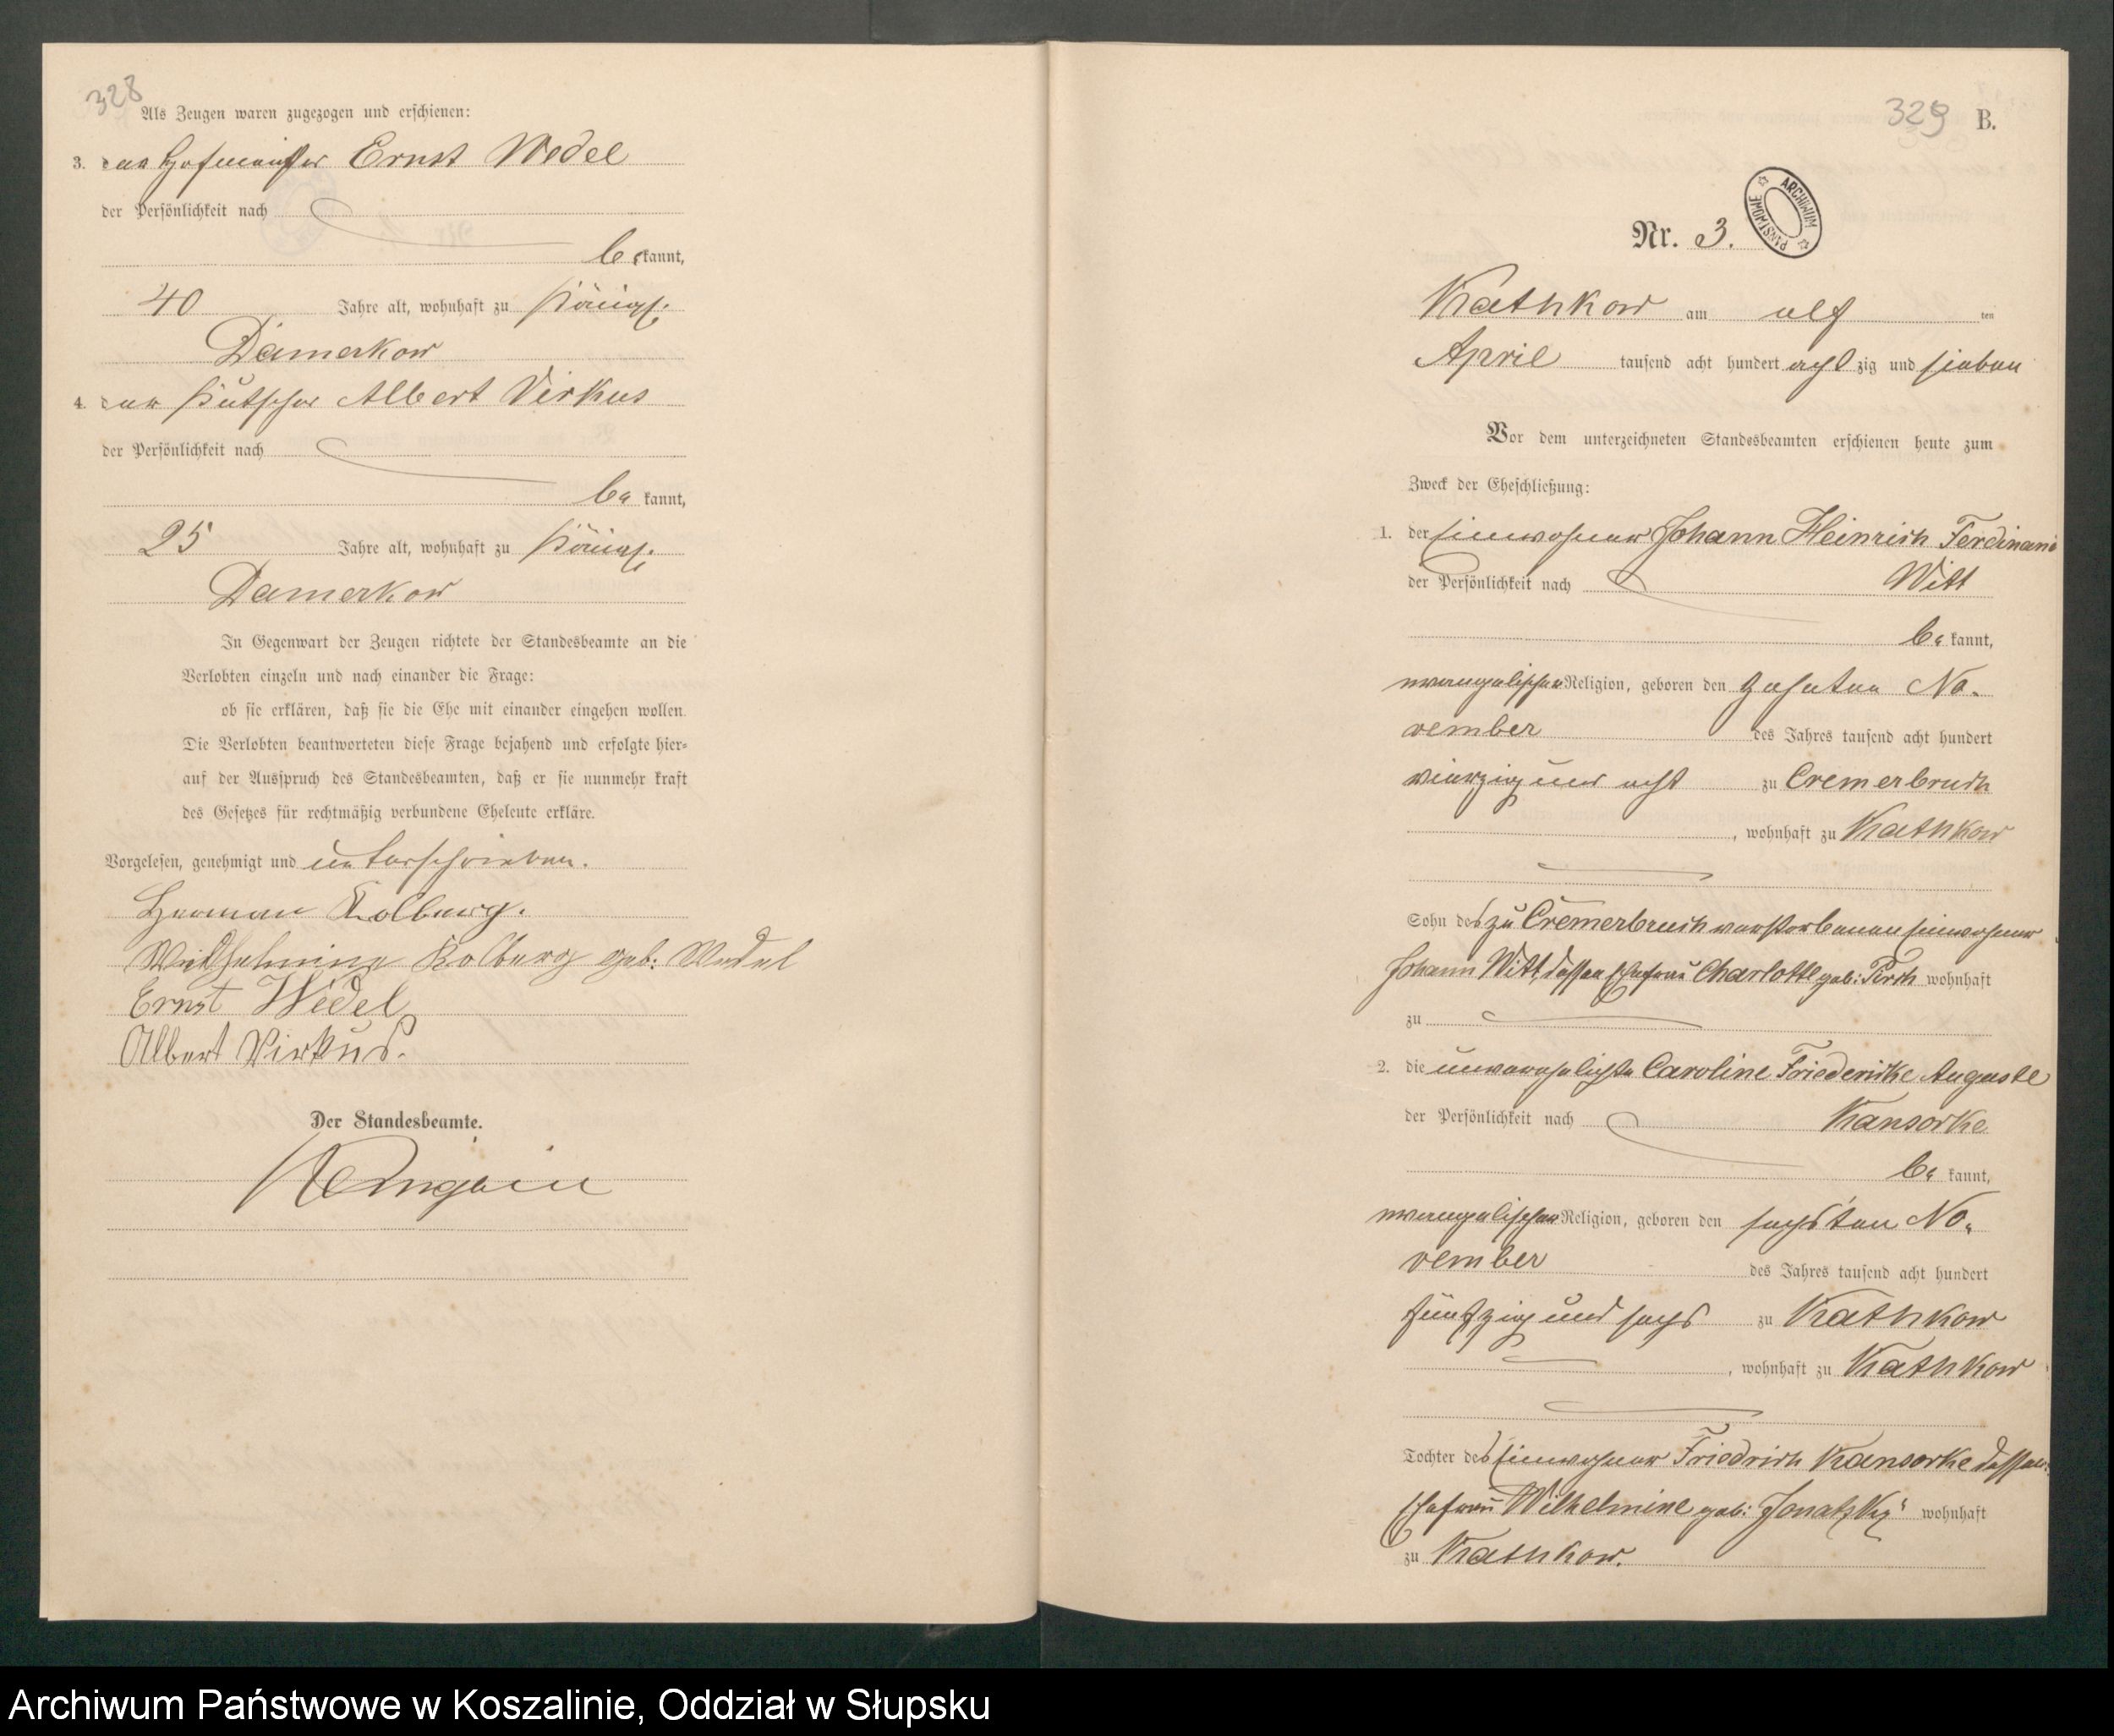 328
Als Zeugen waren zugezogen und erschienen:
3. der Hofmeister Ernst Wedel
der Persönlichkeit nach
be kannt,
40 Jahre alt, wohnhaft zu Königl.
Damerkow
4. der Kutscher Albert Virkus
der Persönlichkeit nach
be kannt,
25 Jahre alt, wohnhaft zu Königl.
Damerkow
In Gegenwart der Zeugen richtete der Standesbeamte an die
Verlobten einzeln und nach einander die Frage:
ob sie erklären, daß sie die Ehe mit einander eingehen wollen.
Die Verlobten beantworteten diese Frage bejahend und erfolgte hier=
auf der Ausspruch des Standesbeamten, daß er sie nunmehr kraft
des Gesetzes für rechtmäßig verbundene Eheleute erkläre.
Vorgelesen, genehmigt und unterschrieben.
Herman Kolberg.
Wilhelmine Kolberg geb: Wedel
Ernst Wedel
Albert Virkus.
Der Standesbeamte.
329 B.
ARCHIWUM PAŃSTWOWE
Nr. 3.
Kathkow am elf ten
April tausend acht hundert acht zig und sieben
Vor dem unterzeichneten Standesbeamten erschienen heute zum
Zweck der Eheschließung:
1. der Einwohner Johann Heinrich Ferdinand
der Persönlichkeit nach Witt
be kannt,
evangelischer Religion, geboren den zehnten No-
vember des Jahres tausend acht hundert
vierzig und acht zu Cremerbruch
, wohnhaft zu Kathkow
Sohn des zu Cremerbruch verstorbenen Einwohner
Johann Witt, dessen Ehefrau Charlotte geb: Pirch wohnhaft
zu
2. die unverehelichte Caroline Friedericke Auguste
der Persönlichkeit nach Kansorke
be kannt,
evangelischer Religion, geboren den sechsten No-
vember des Jahres tausend acht hundert
fünfzig und sechs zu Kathkow
, wohnhaft zu Kathkow
Tochter des Einwohner Friedrich Kansorke dessen
Ehefrau Wilhelmine geb: Jonatzky wohnhaft
zu Kathkow.
Archiwum Państwowe w Koszalinie, Oddział w Słupsku